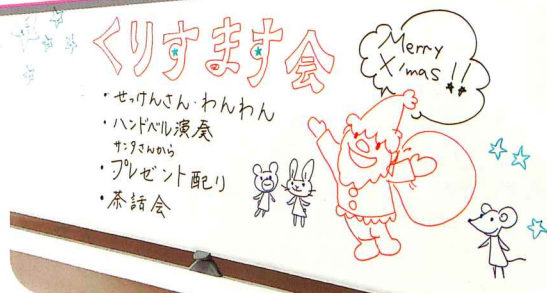 くりすます会
Merry
X'mas!!
・せっけんさん・わんわん
・ハンドベル演奏
サンタさんから
・プレゼント配り
・茶話会